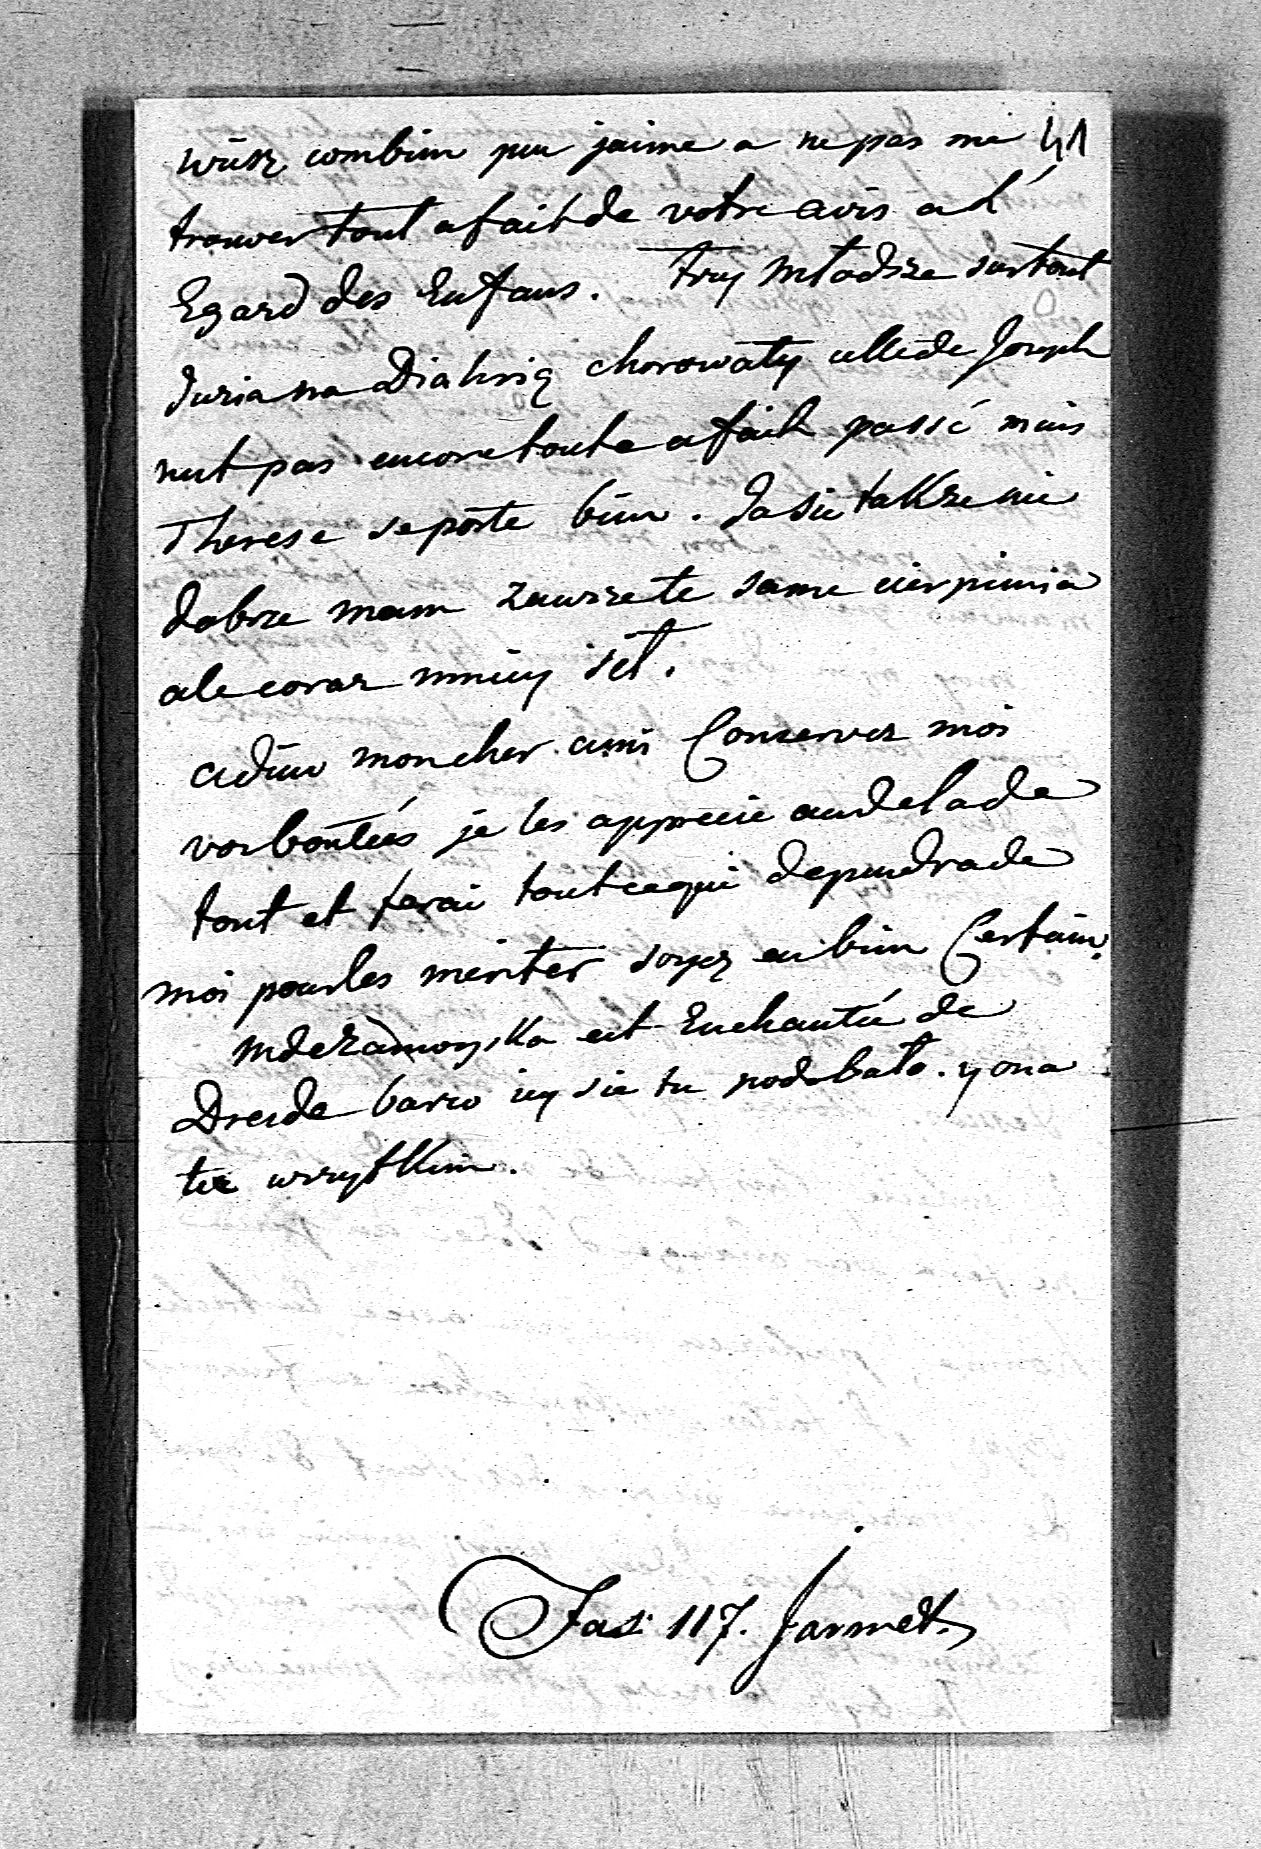 wiesz combien peu jaime a ne pas me 41
trouver tout a fait de votre avis a l'
Egard des Enfans. Trzy Młodsze surtout
Juzia na Diakrią chorowaty celle de Joseph
nest pas encore toute a fait passé mais
Therese se porte bien. Ja sie takze nie
dobrze mam zawsze te same cierpienia
ale coraz mniey sił.
adieu mon cher ami Conservez moi
vos bontées je les apprecie au dela de
tout et ferai tout ce qui dependra de
moi pour les meriter soyez en bien Certain.
Mde Zamoyska est Enchantée de
Dresde barzo iey sie tu podobało. y ona
tez wszystkim.
Fas: 117. Jarmet.